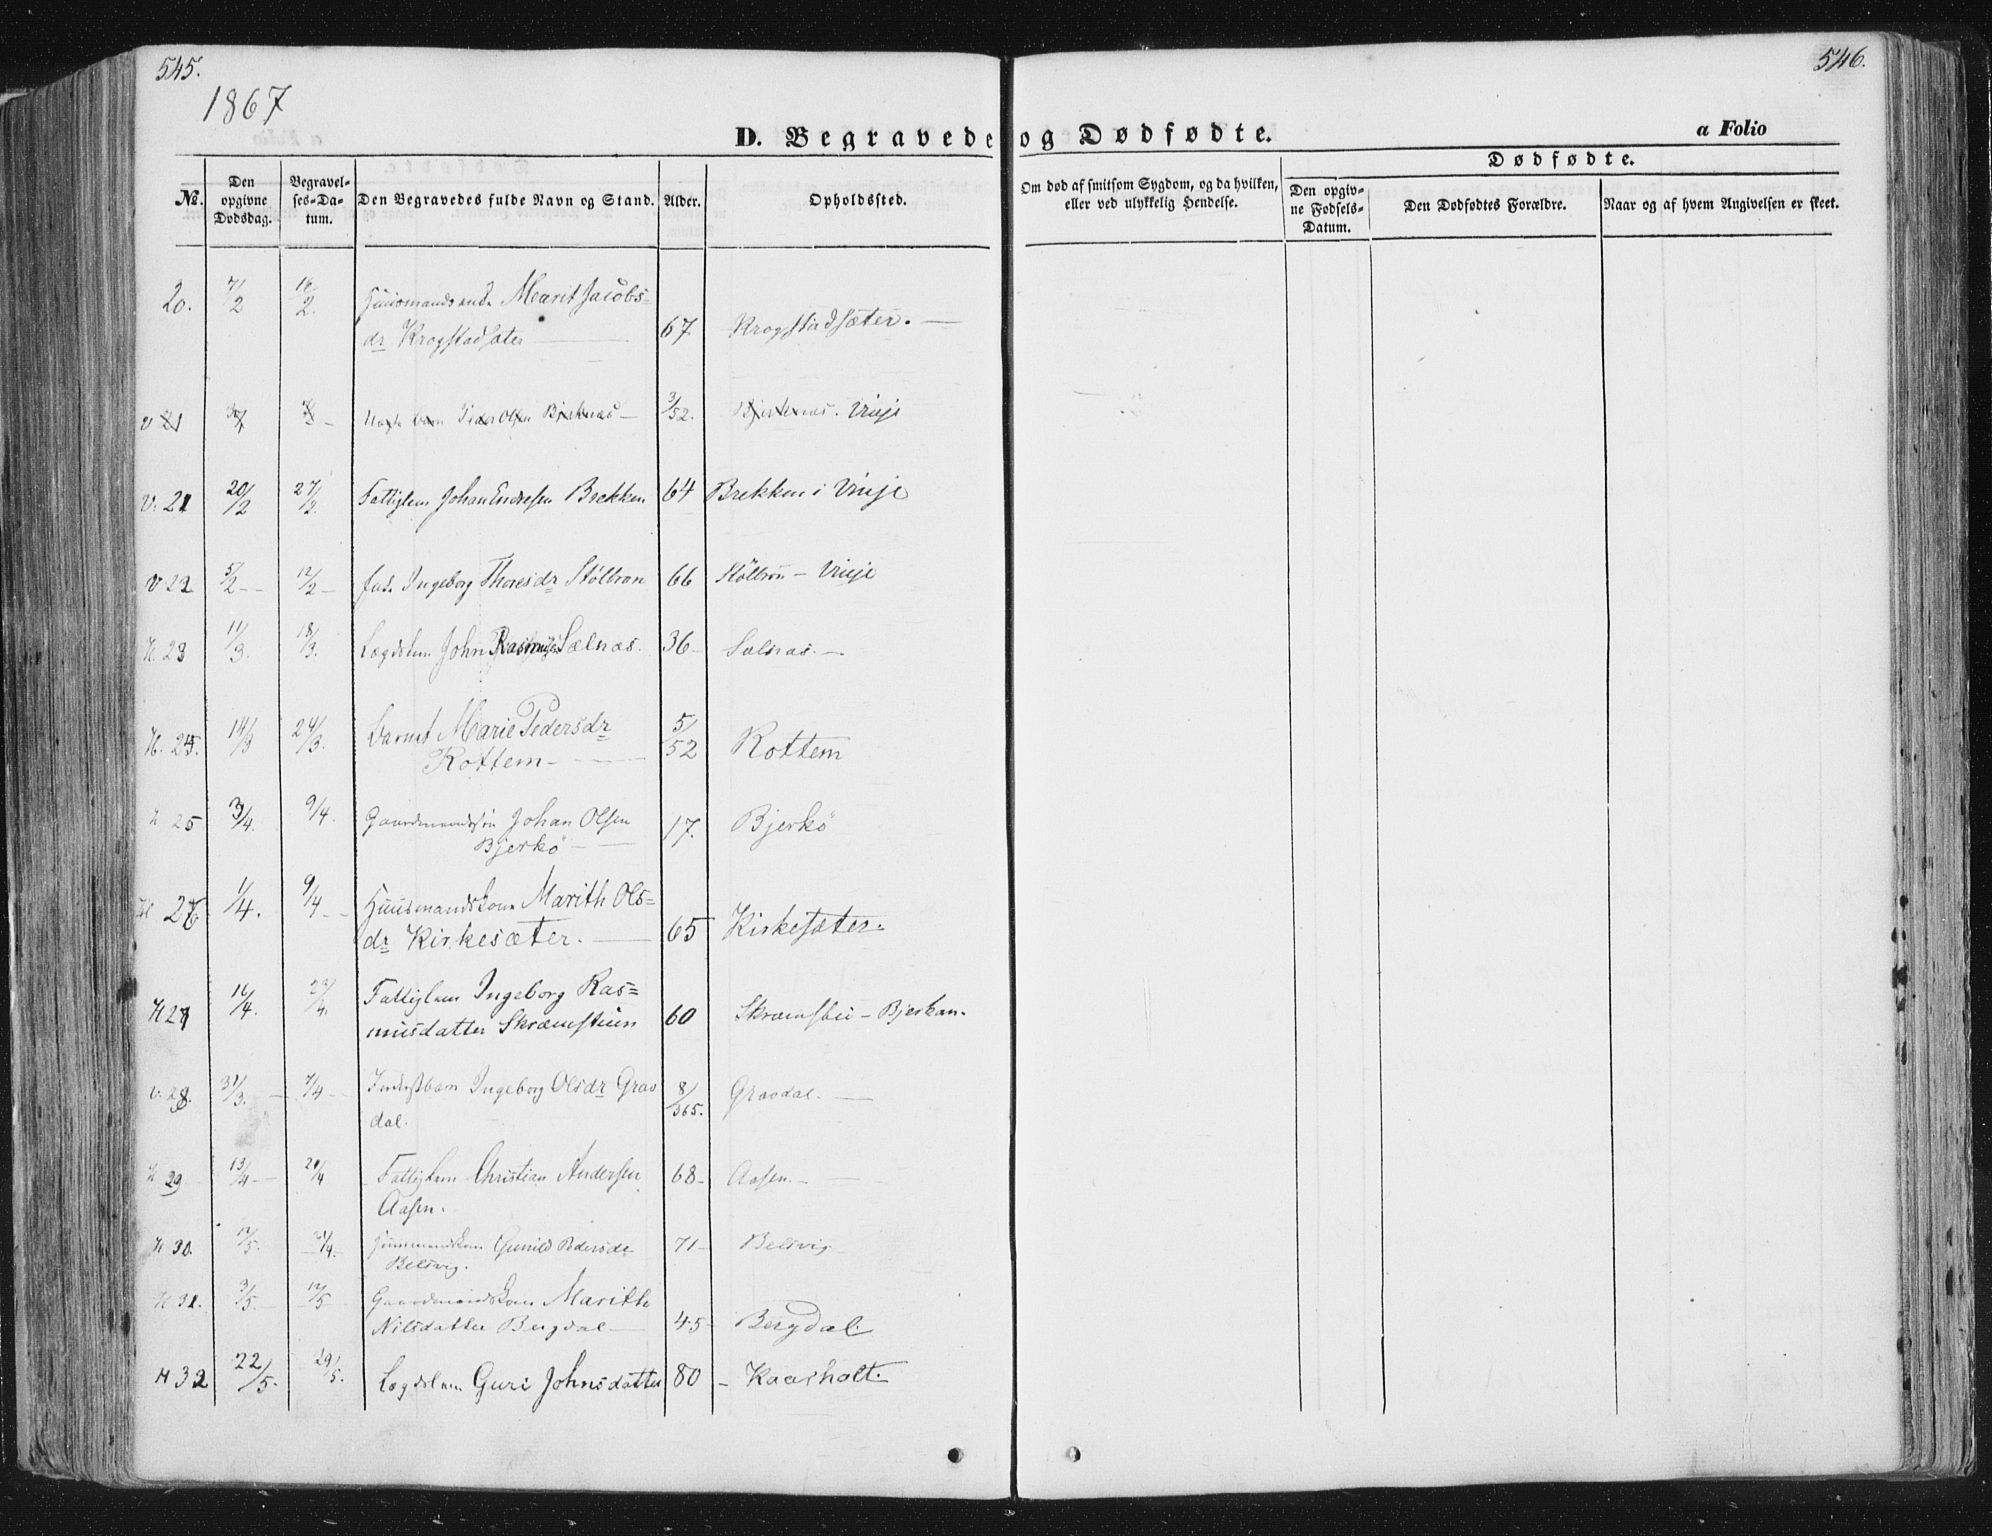 545.
546.
1867
D. Begravede og Dødfødte.
a Folio
Dødfødte.
No. Den opgivne Dødsdag. Begravelses-Datum. Den Begravedes fulde Navn og Stand. Alder. Opholdssted. Om død af smitsom Sygdom, og da hvilken, eller ved ulykkelig Hendelse. Den opgivne Fødsels-Datum. Den Dødfødtes Forældre. Naar og af hvem Angivelsen er skeet.
20. 7/2 2. Marit Jacobs=
dr Krogstadsæter 67. Krogstadsæter.
V 21 3/52. Vinje
V. 21 20/2 27/2. Fattiglem Johan Endresen Brekken 64 Brekken i Vinje
V 22 5/2 12/2 Ingeborg Thoresdr Støltrøn 66 Støltrøn - Vinje
H. 23 11/3. 18/3. Lægdslem John Rasmusen Sælnæs. 36 Sælnæs.
H. 14/3 24/3. barnet Marie Pedersdr
Rottem 5/52 Rottem
H 25 3/4. 9/4. Gaardmandssøn Johan Olsen
Bjerkö 17. Bjerkö
H 26 1/4. 9/4 Huusmandskone Marith Ols=
dr Kirkesæter. 65 Kirkesæter.
H 27 16/4. 23/4. Fattiglem Ingeborg Ras=
musdatter Skræmstuen 60 Skræmstu - Bjerkan.
V. 28. 31/3. 7/4 Ingeborg Olsdr Grav
dal. 8/365. Gravdal.
H 29 13/4 21/4 Fattiglem Christian Andersen
Aasen. 68 Aasen.
H 30. 12/5. Gunild Pedersdr
Belsvig. 71 Belsvig
H 31. 3/5. 12/5 Gaardmandskone Marith
Nilsdatter Bergdal 45 Bergdal.
H 32 22/5. 29/5. Lægdslem Guri Johnsdatter 80 Kaarholt.